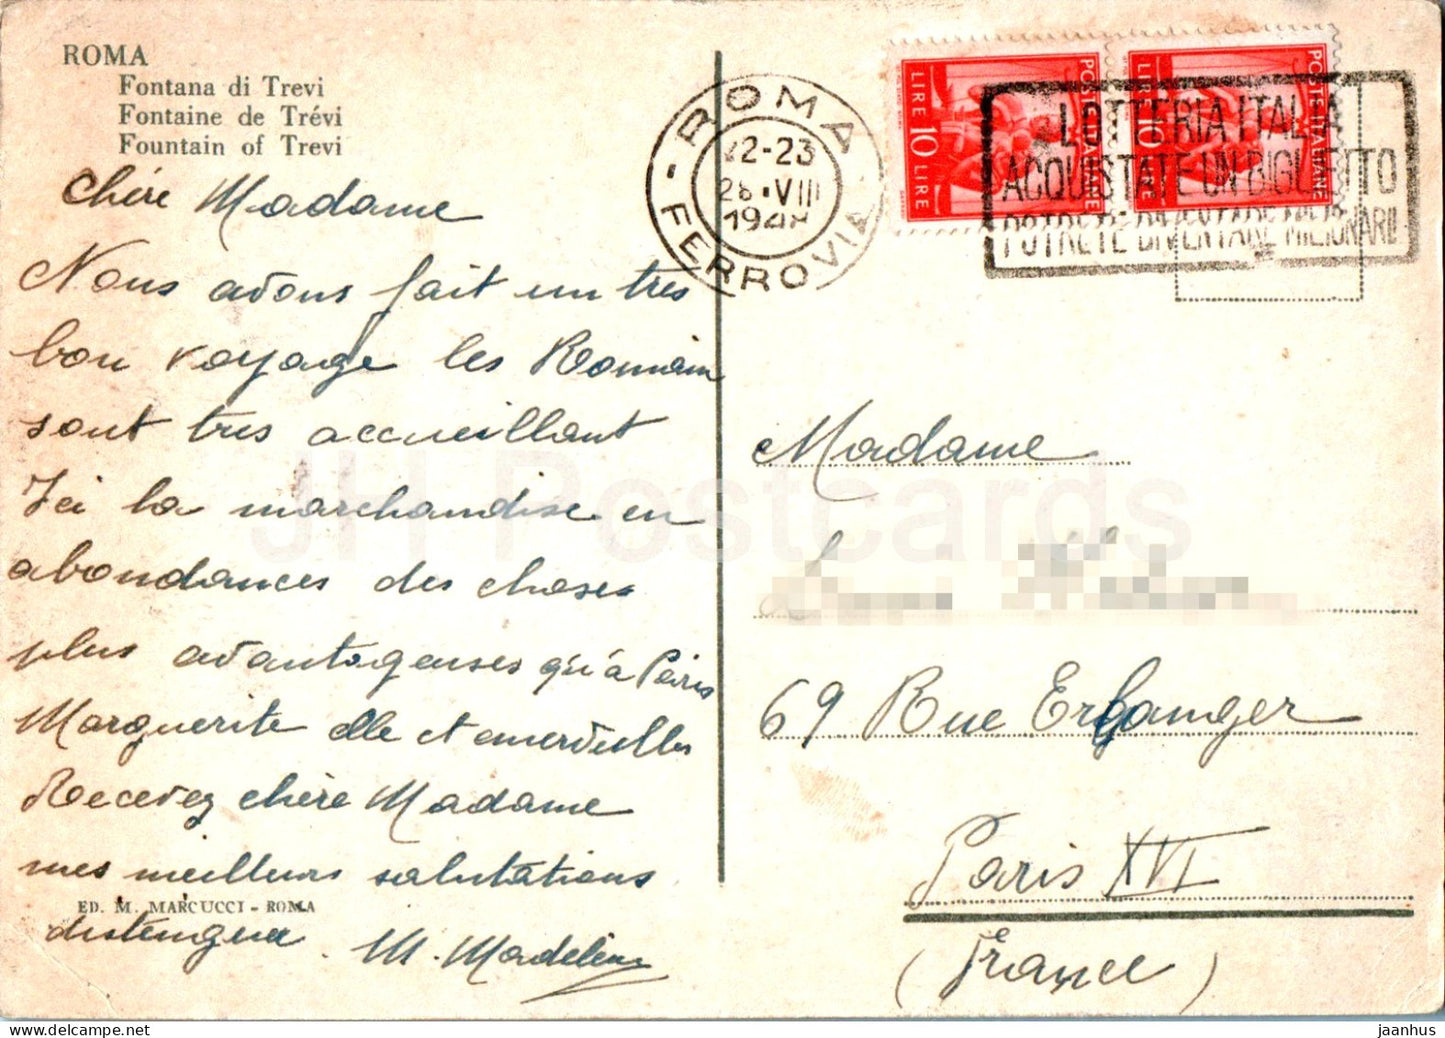 ROMA
Fontana di Trevi
Fontaine de Trévi
Fountain of Trevi
Chère Madame
Nous avons fait un tres
bon voyage les Romain
sont tres accueillant
Ici la marchandise en
abondances des choses
plus avantageuses qu'à Paris
Marguerite elle et emerveilles
Recevez chère Madame
mes meilleurs salutations
distenguer
M. Madeleine
ED. M. MARCUCCI - ROMA
- ROMA -
22-23
28.VIII
FERROVIA
POSTE ITALIANE
LIRE 10 LIRE
POSTE ITALIANE
LIRE 10 LIRE
LOTTERIA ITALIA
ACQUISTATE UN BIGLIETTO
POTRETE DIVENTARE MILIONARI!
Madame
69 Rue Erlanger
Paris XVI
(France)
JH Postcards
jaanhus
© www.delcampe.net